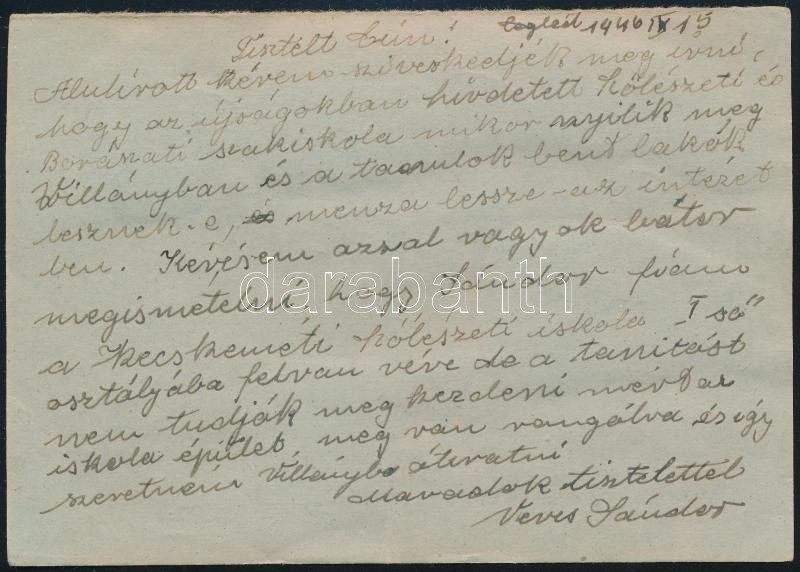 Cegléd 1946 IX 15
Tisztélt Cím!
Alulírott kérem sziveskedjék meg irni,
hogy az újságokban hirdetett Szőlészeti és
Borászati szakiskola mikor nyilik meg
Villányban és a tanulok bent lakók
lesznek-e, és menza lessze-az intézet
ben. Kérésem azzal vagyok bátor
megismételni, hogy Sándor fiam
a Kecskeméti Szőlészeti iskola I ső"
osztályába felvan véve de a tanitást
nem tudják meg kezdeni mért az
iskola épület meg van rongálva és így
szeretném Villányba átiratni
Maradok tisztelettel
Veres Sándor
darabanth